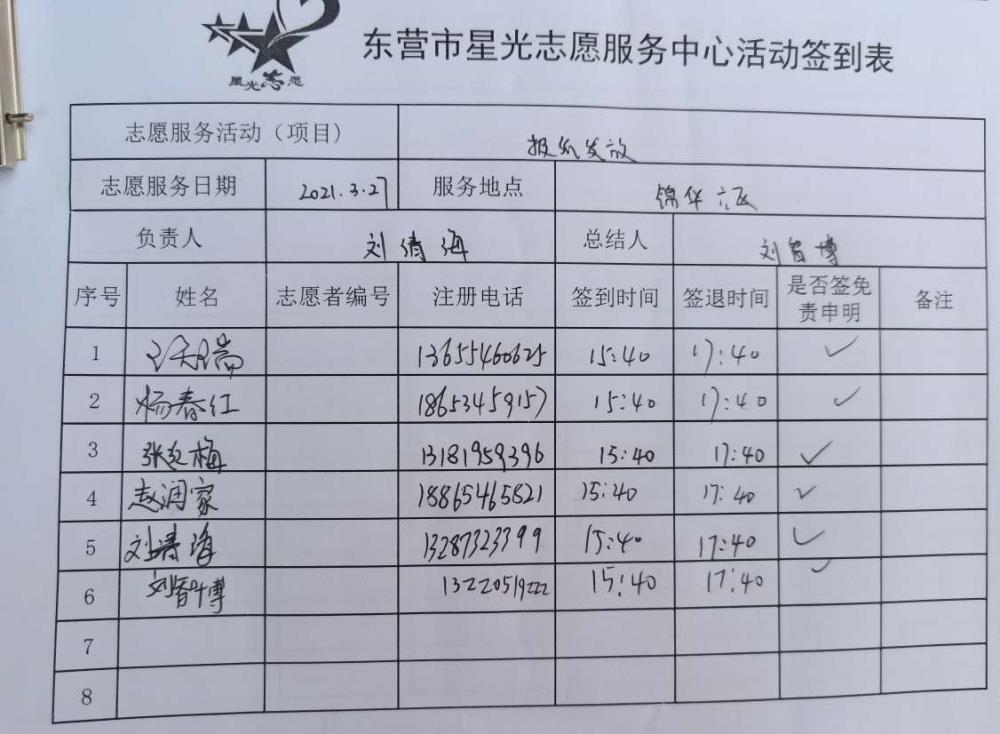 星光志愿
东营市星光志愿服务中心活动签到表
志愿服务活动（项目） 报纸发放
志愿服务日期 2021.3.27 服务地点 锦华六区
负责人 刘清海 总结人 刘智博
序号 姓名 志愿者编号 注册电话 签到时间 签退时间 是否签免责申明 备注
1 王天瑞 13655460625 15:40 17:40 ✓
2 杨春红 18653459157 15:40 17:40 ✓
3 张红梅 13181959396 15:40 17:40 ✓
4 赵润家 18865465821 15:40 17:40 ✓
5 刘清海 13287323399 15:40 17:40 ✓
6 刘智博 13220519222 15:40 17:40 ✓
7
8